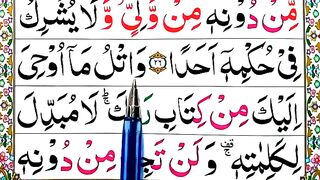 مِّنْ دُوْنِهٖ مِنْ وَّلِیٍّ وَّ لَا یُشْرِكُ
فِیْ حُكْمِهٖۤ اَحَدًا ﴿۲۶﴾ وَاتْلُ مَاۤ اُوْحِیَ
اِلَیْكَ مِنْ كِتَابِ رَبِّكَ ؕۚ لَا مُبَدِّلَ
لِكَلِمٰتِهٖ ۚ قف وَلَنْ تَجِدَ مِنْ دُوْنِهٖ